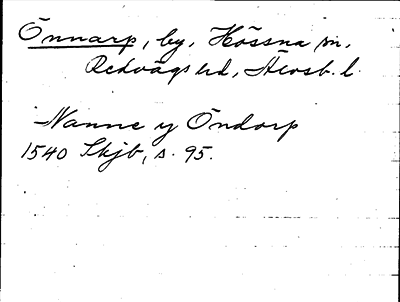 Önnarp, by, Hössna sn,
Redvägs hd, Älvsb. l.
Nanne y Öndorp
1540 Skjb, s. 95.